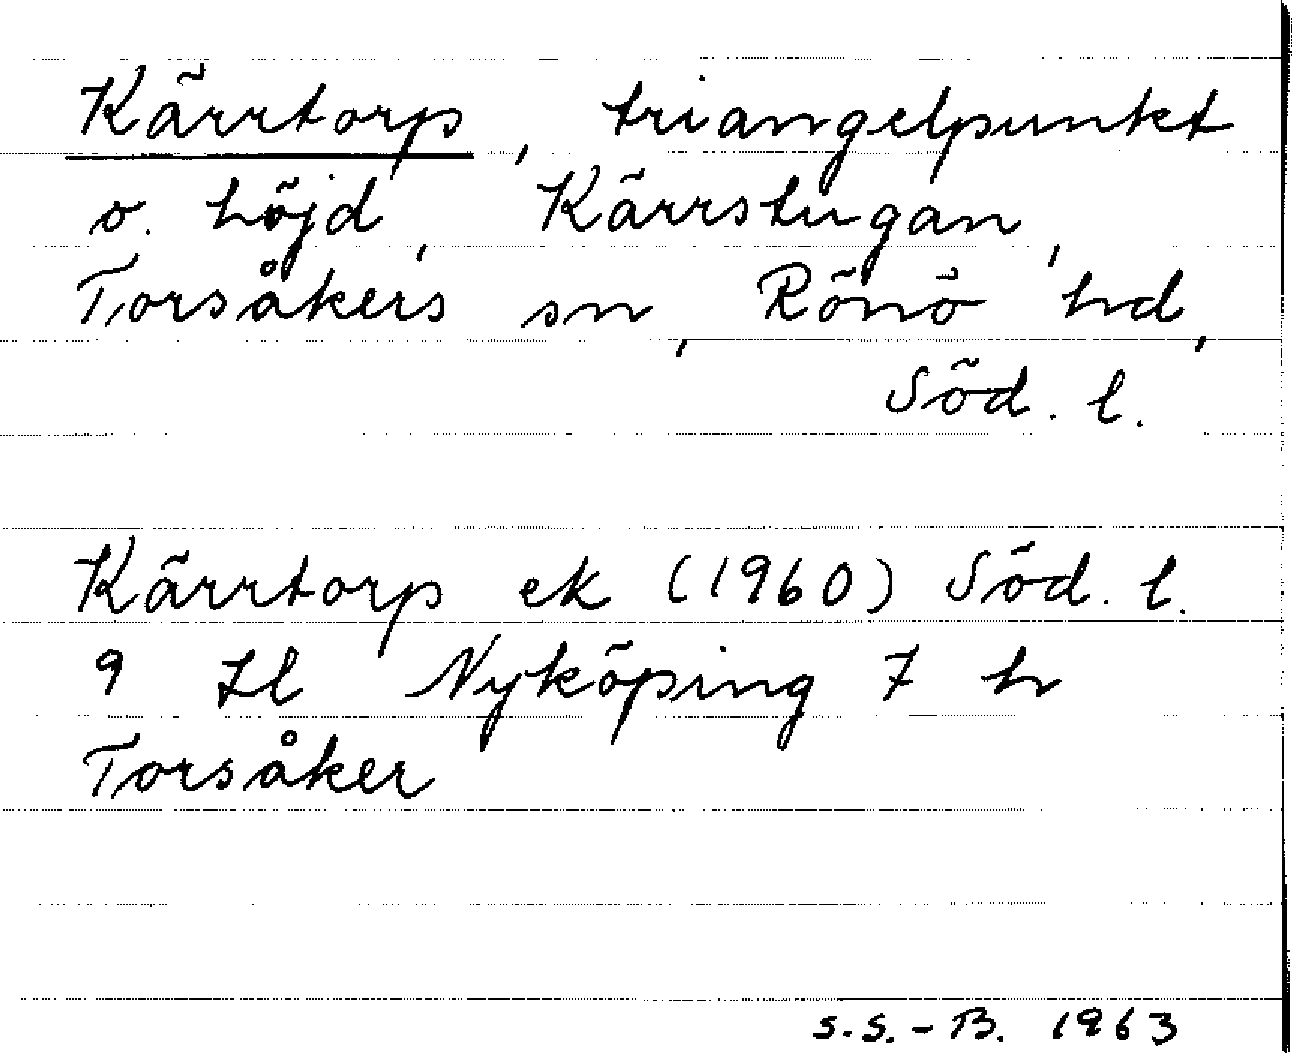 Kärrtorp, triangelpunkt
o. höjd, Kärrstugan,
Torsåkers sn, Rönö hd,
Söd. l.
Kärrtorp ek (1960) Söd. l.
9 Hl Nyköping 7 h
Torsåker
S.S.-B. 1963